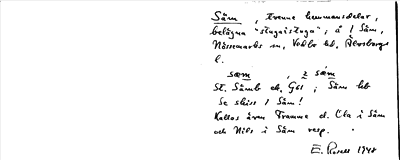 Såm, trenne hemmansdelar,
belägna "stugaistuga"; å i Såm,
Nössemarks sn, Vedbo hd, Älvsborgs
l.
sæm, 2 sám
St. Såmb eb. G61; Såm
Se skiss i Såm!
Kallas även Tramme d. Ola i Såm
och Nils i Såm resp.
E. Rosell 1948